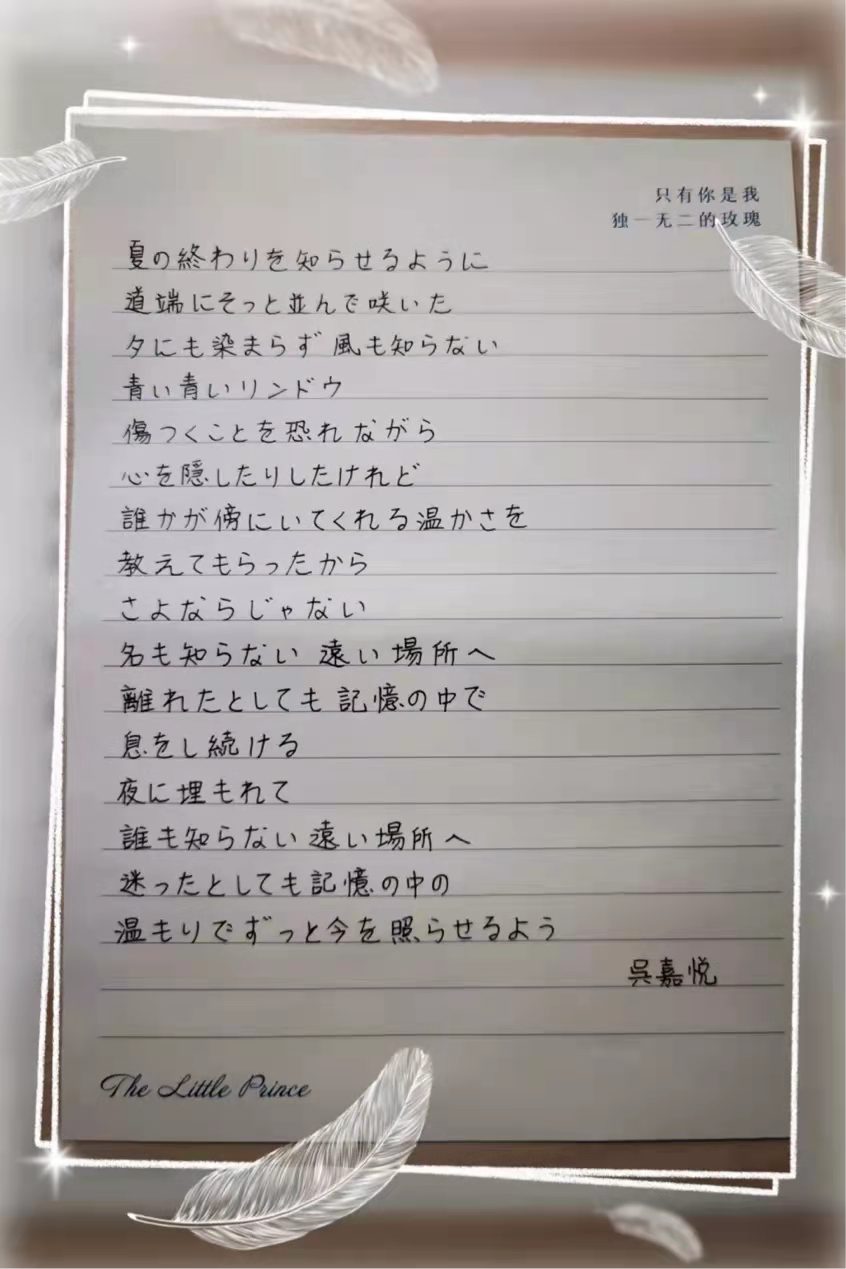 只有你是我
独一无二的玫瑰
夏の終わりを知らせるように
道端にそっと並んで咲いた
夕にも染まらず 風も知らない
青い青いリンドウ
傷つくことを恐れながら
心を隠したりしたけれど
誰かが傍にいてくれる温かさを
教えてもらったから
さよならじゃない
名も知らない 遠い場所へ
離れたとしても 記憶の中で
息をし続ける
夜に埋もれて
誰も知らない 遠い場所へ
迷ったとしても記憶の中の
温もりでずっと今を照らせるよう
呉嘉悦
The Little Prince